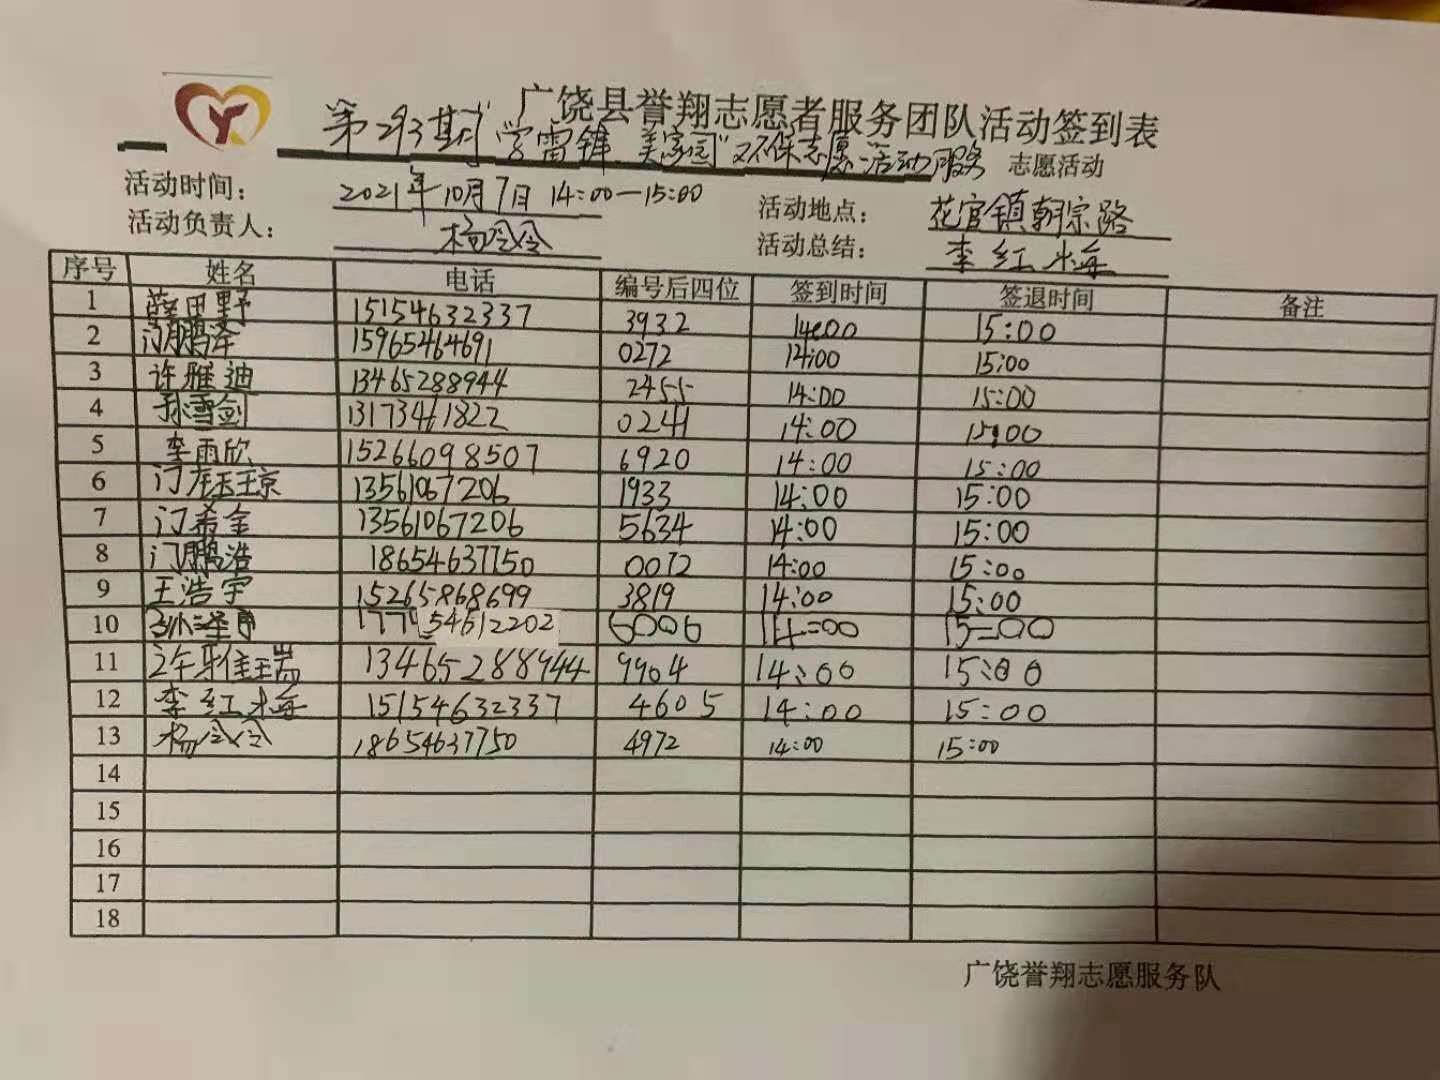 广饶县誉翔志愿者服务团队活动签到表
第293期"学雷锋 美家园"环保志愿活动服务 志愿活动
活动时间： 2021年10月7日 14:00—15:00 活动地点： 花官镇朝宗路
活动负责人： 杨冷冷 活动总结： 李红梅
序号 姓名 电话 编号后四位 签到时间 签退时间 备注
1 薛田野 15154632337 3932 14:00 15:00
2 门鹏泽 15965464691 0272 14:00 15:00
3 许雅迪 13465288944 2455 14:00 15:00
4 孙雪剑 13173461822 0241 14:00 15:00
5 李雨欣 15266098507 6920 14:00 15:00
6 门 13561067206 1933 14:00 15:00
7 门希金 13561067206 5634 14:00 15:00
8 门鹏浩 18654637750 0072 14:00 15:00
9 王浩宇 15265868699 3819 14:00 15:00
10 54612202 6006 14:00 15:00
11 许雅瑞 13465288944 9904 14:00 15:00
12 李红梅 15154632337 4605 14:00 15:00
13 杨冷冷 18654637750 4972 14:00 15:00
14
15
16
17
18
广饶誉翔志愿服务队